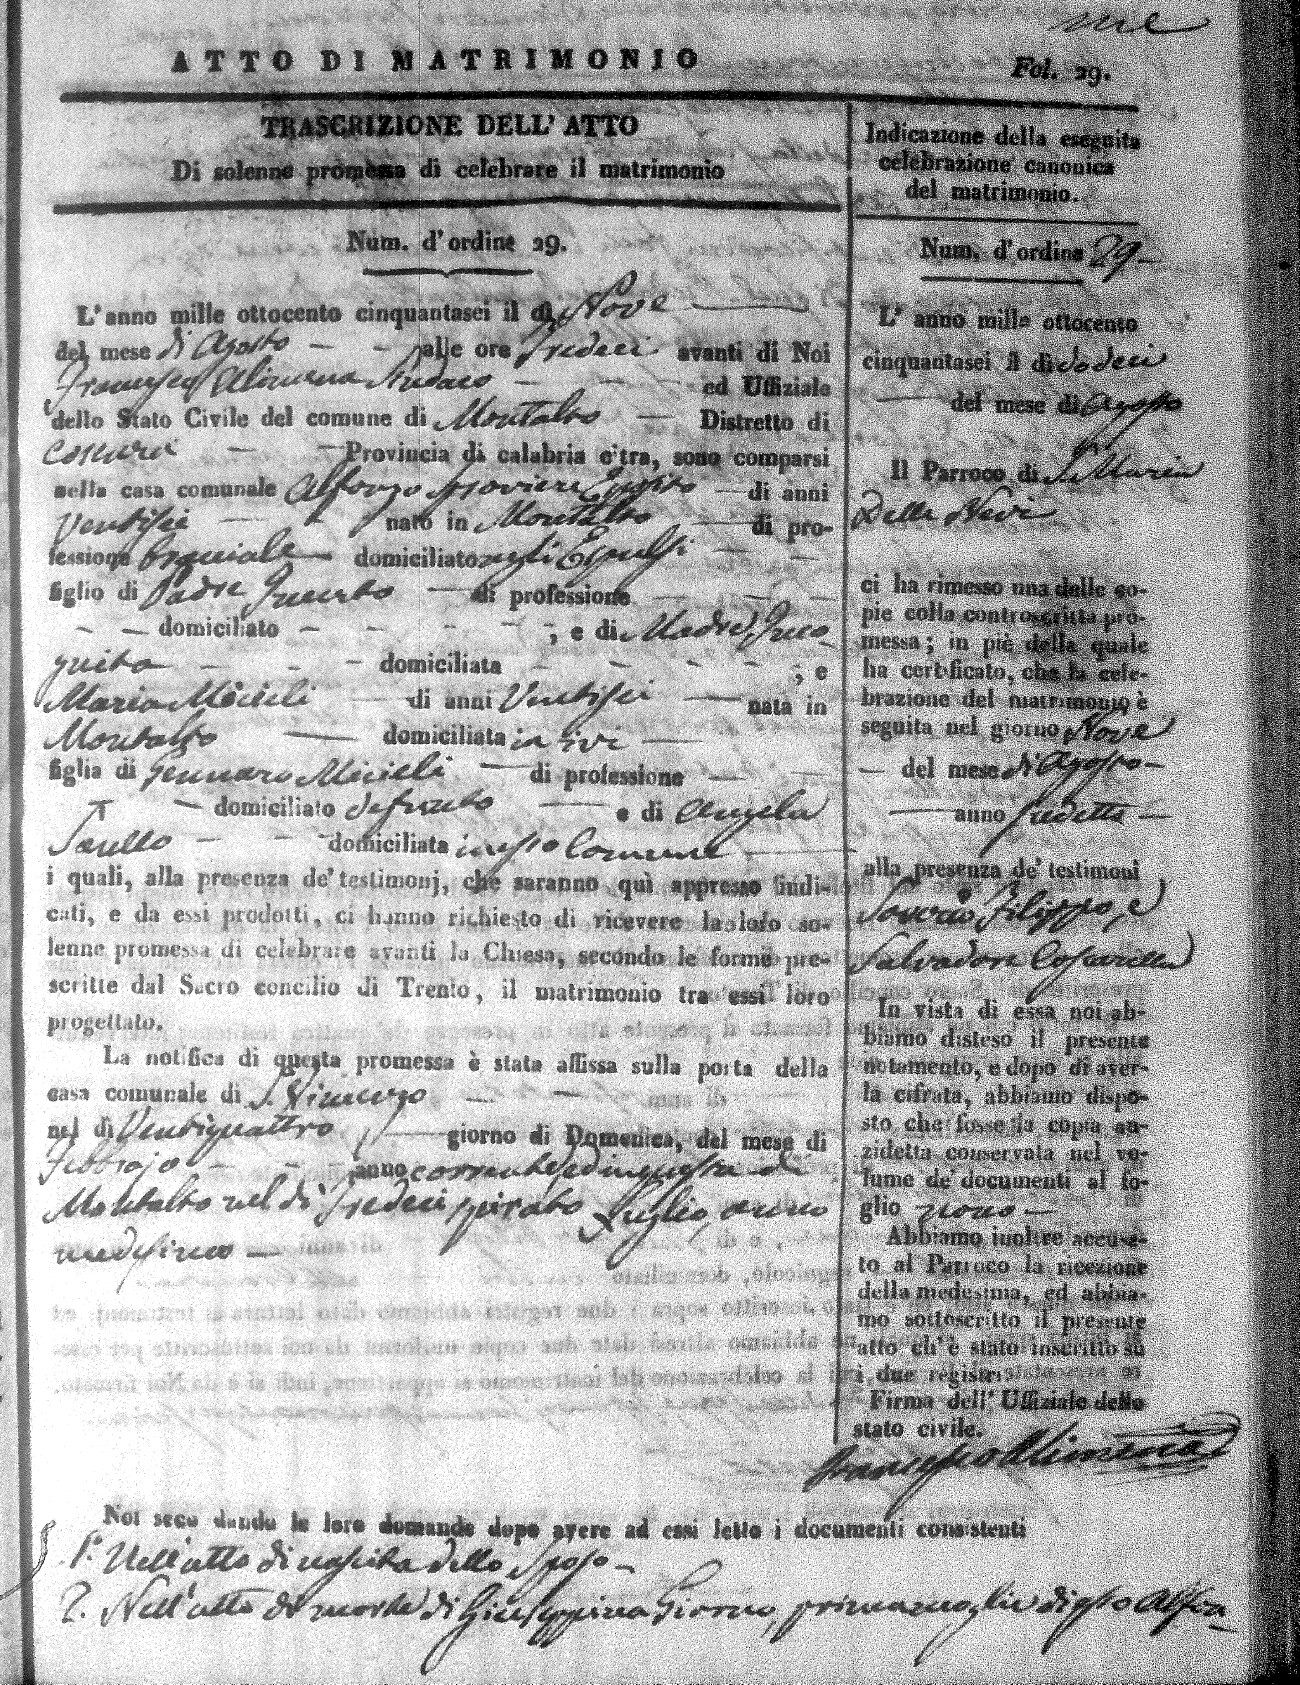 me
ATTO DI MATRIMONIO
Fol. 29.
TRASCRIZIONE DELL' ATTO
Di solenne promessa di celebrare il matrimonio
Num. d' ordine 29.
L' anno mille ottocento cinquantasei il dì Nove
del mese di Agosto alle ore Tredeci avanti di Noi
Francesco Alimena Sindaco ed Uffiziale
dello Stato Civile del comune di Montalto Distretto di
Cosenza Provincia di calabria c'tra, sono comparsi
nella casa comunale Alfonzo di anni
Ventisei nato in Montalto di pro-
fessione domiciliato negli Esposti
figlio di Padre Incerto di professione
domiciliato , e di Madre Inco
gnita domiciliata ; e
Maria Micieli di anni Ventisei nata in
Montalto domiciliata in ivi
figlia di Gennaro Micieli di professione
domiciliato defunto e di Angela
domiciliata in esso Comune
i quali, alla presenza de' testimonj, che saranno quì appresso indi-
cati, e da essi prodotti, ci hanno richiesto di ricevere la loro so-
lenne promessa di celebrare avanti la Chiesa, secondo le forme pre-
scritte dal Sacro concilio di Trento, il matrimonio tra essi loro
progettato.
La notifica di questa promessa è stata affissa sulla porta della
casa comunale di S. Vincenzo
nel dì Ventiquattro giorno di Domenica, del mese di
Febbrajo anno corrente ed in questa di
Montalto nel dì Tredeci spirato Luglio, anno
medesimo
Indicazione della eseguita
celebrazione canonica
del matrimonio.
Num. d' ordine 29
L' anno mille ottocento
cinquantasei il dì dodeci
del mese di Agosto
Il Parroco di S. Maria
Delle Nevi
ci ha rimesso una delle co-
pie colla controscritta pro-
messa; in piè della quale
ha certificato, che la cele-
brazione del matrimonio è
seguita nel giorno Nove
del mese di Agosto
anno sudetto
alla presenza de' testimoni
Filippo, e
Salvadore Coscarella
In vista di essa noi ab-
biamo disteso il presente
notamento, e dopo di aver-
la cifrata, abbiamo dispo-
sto che fosse la copia an-
zidetta conservata nel vo-
lume de' documenti al fo-
glio nono
Abbiamo inoltre accusa-
to al Parroco la ricezione
della medesima, ed abbia-
mo sottoscritto il presente
atto ch' è stato inscritto su
i due registri
Firma dell' Uffiziale dello
stato civile.
Francesco Alimena
Noi secondando le loro domande dopo avere ad essi letto i documenti consistenti
1°. Nell'atto di nascita dello Sposo
2. Nell'atto di morte di Giuseppina Giorno, prima moglie di esso Alfon